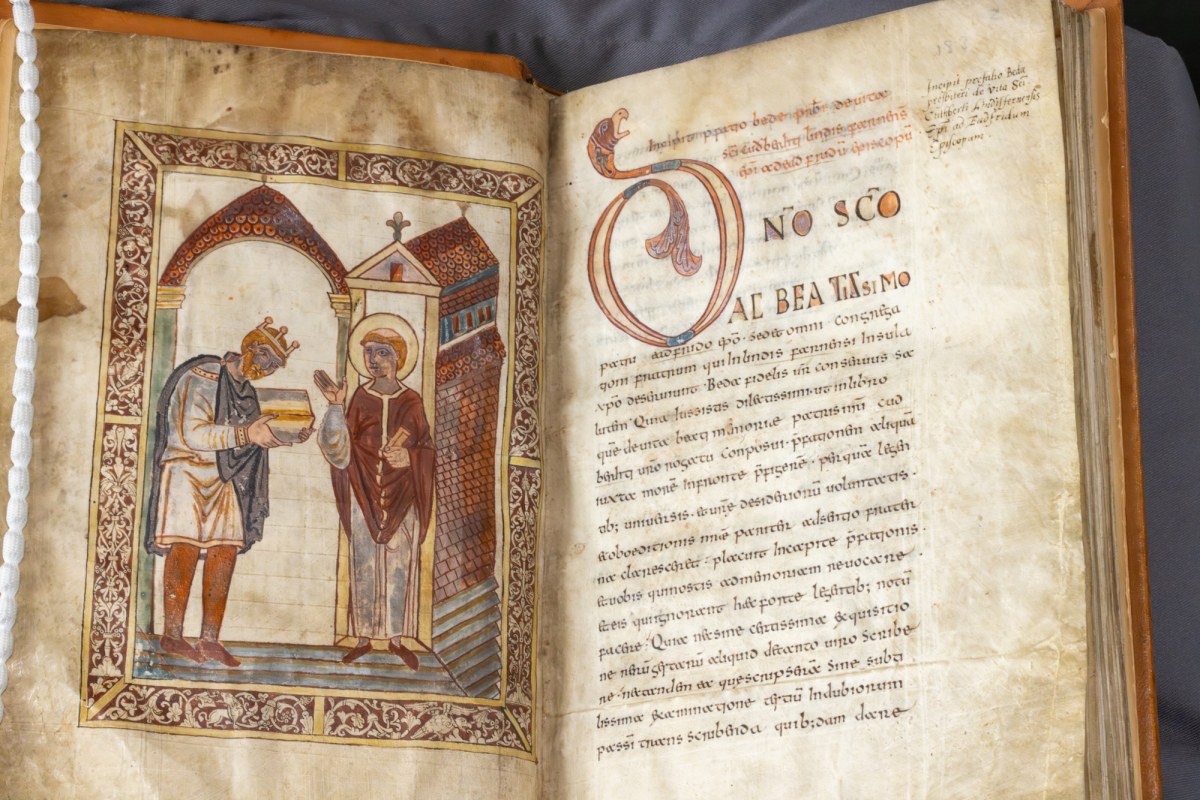 188
Incipit p̄fatio bede p̄sb̄i de uita
s̄c̄i cudberhti lindisfarnensis
ep̄i ad eadfridū episcopū
Incipit prefatio Bedæ
presbiteri de vita S̄c̄i
Cutberti Lindisfernensis
Ep̄i ad Eadfridum
Episcopum.
DNO SC̄O
AC BEATISSIMO
patri eadfrido ep̄o. sed et omni congrega
tioni fratrum qui in lindisfarnensi insula
xp̄o deseruiunt. Beda fidelis ur̄ conseruus sa
lutem. Quia iussistis dilectissimi ut in libro
quē de uita beatę memoriæ patris nr̄i cud
berhti uro rogatu composui. p̄fationem aliquā
iuxta morē in fronte p̄figerē. per quā legen
tib; uniuersis. & uræ desideriorū uoluntatis.
& oboeditionis meę pariter adsertio frater
na claresceret. placuit in capite p̄fationis.
& uobis qui nostis ad memoriam reuocare.
& eis qui ignorant hæc forte legentib; notū
facere. Quia nec sine certissima exquisitio
ne rerū gestarū aliquid de tanto uiro scribe
re. nec tandem ea que scripserā sine subti
lissima examinatione testiū indubiorum
passi transcribenda quibusdam dare